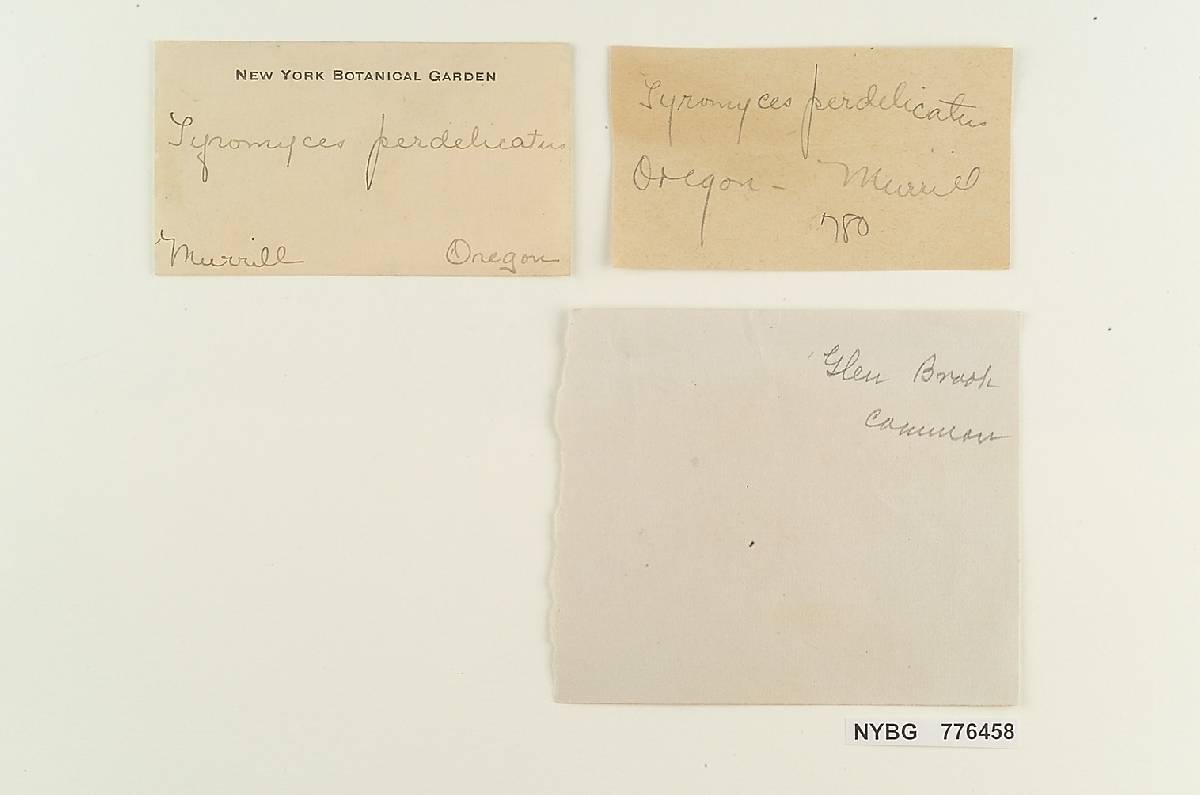 NEW YORK BOTANICAL GARDEN
Tyromyces perdelicatus
Murrill Oregon
Tyromyces perdelicatus
Oregon - Murrill
780
Glen Brook
common
NYBG 776458